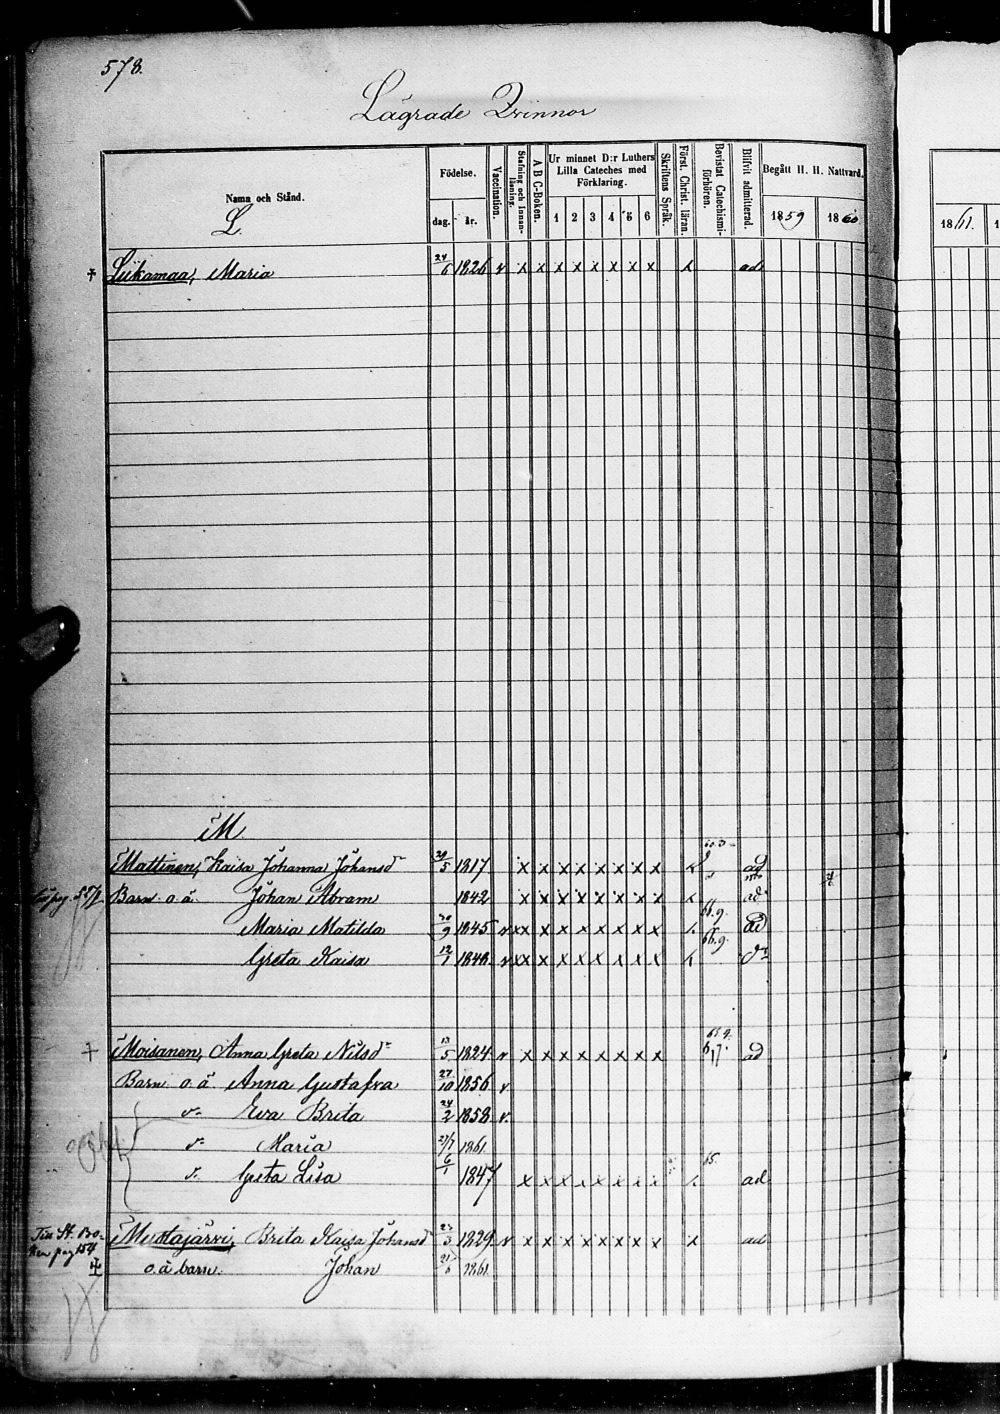 578.
Lägrade Qvinnor
Nama och Stånd.
L.
Födelse.
dag. år.
Vaccination.
Stafning och Innanläsning.
A B C-Boken
Ur minnet D:r Luthers Lilla Cateches med Förklaring.
1 2 3 4 5 6
Skriftens Språk.
Först. Christ. läran.
Bevistat Catechismiförhören.
Blifvit admitterad.
Begått H. H. Nattvard.
1859 1860
1861.
‡ Liikamaa, Maria 24/6 1826 v x x x x x x x x x ad
M.
Mattinen, Kaisa Johanna Johansdr 29/5 1817 x x x x x x x x x ad
Barn o. ä. Johan Abram 1842 x x x x x x x x x ad
Maria Matilda 30/9 1845 v xx x x x x x x x 66.9. ad
Greta Kaisa 12/1 1848 v xx x x x x x x x 66.9. dr
Moisanen, Anna Greta Nilsdr 13/5 1824 v x x x x x x x x ad
Barn o. ä. Anna Gustafva 27/10 1856 v
dr Eva Brita 24/2 1858 v.
dr Maria 27/7 1861.
dr Greta Lisa 6/1 1847 x x x x x x x x x 65. ad
Mustajärvi, Brita Kaisa Johansd 23/3 1829 v x x x x x x x x x ad
o. ä barn. Johan 21/6 1861.